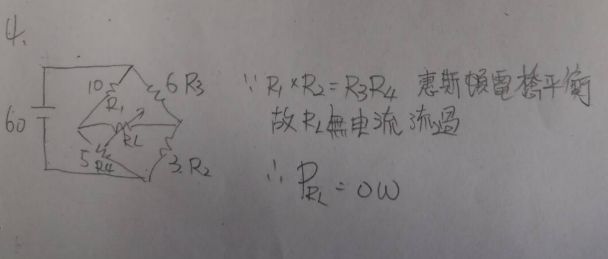 4.
10
R₁
6 R₃
60
RL
5
R4
3 R₂
∵ R₁×R₂=R₃R₄ 惠斯頓電橋平衡
故 RL 無電流流過
∴ PRL = 0W